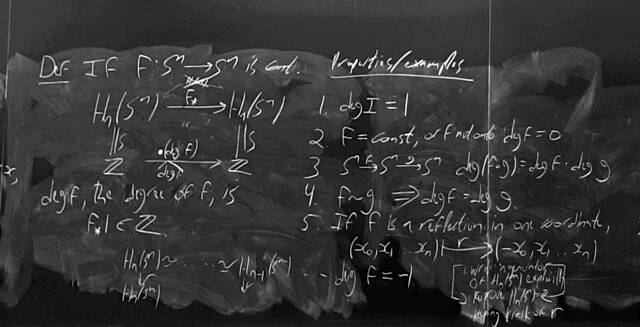 Def If F: Sⁿ → Sⁿ is cont.
Hₙ(Sⁿ) →F* Hₙ(Sⁿ)
∥S ∥S
ℤ →·(deg f) ℤ
deg f, the degree of f, is
F*1 ∈ ℤ.
Hₙ(Sⁿ) ≈ ... ≈ Hₙ₋₁(Sⁿ⁻¹) ...
Hₙ(Sⁿ)
Properties/examples
1. deg I = 1
2. F = const, or f not onto deg f = 0
3 Sⁿ →f Sⁿ →g Sⁿ deg(f∘g) = deg f · deg g
4. f ~ g ⇒ deg f = deg g.
5. If f is a reflection in one coordinate,
(x₀, x₁ ... xₙ) ↦r (-x₀, x₁ ... xₙ)
deg f = -1
of Hₙ(Sⁿ) explicitly
of r